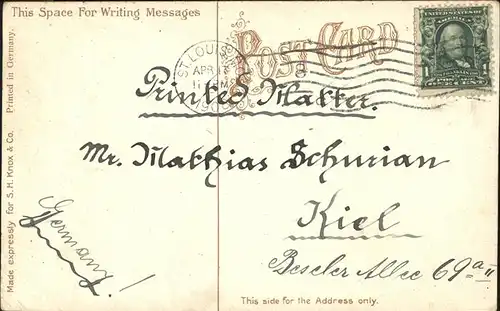 This Space For Writing Messages
POST CARD
ST. LOUIS
APR
Printed Matter.
Mr. Mathias Schurian
Kiel
Beseler Allee 69 a II
Germany!
This side for the Address only.
Made expressly for S.H. Knox & Co. Printed in Germany.